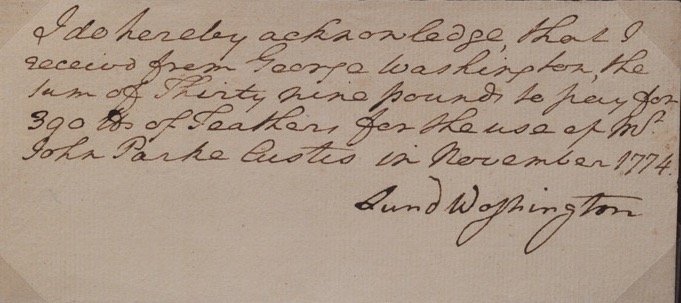 I do hereby acknowledge, that I
receivd from George Washington, the
sum of Thirty nine pounds to pay for
390 lbs of Feathers for the use of Mr.
John Parke Custis in November 1774.
Lund Washington